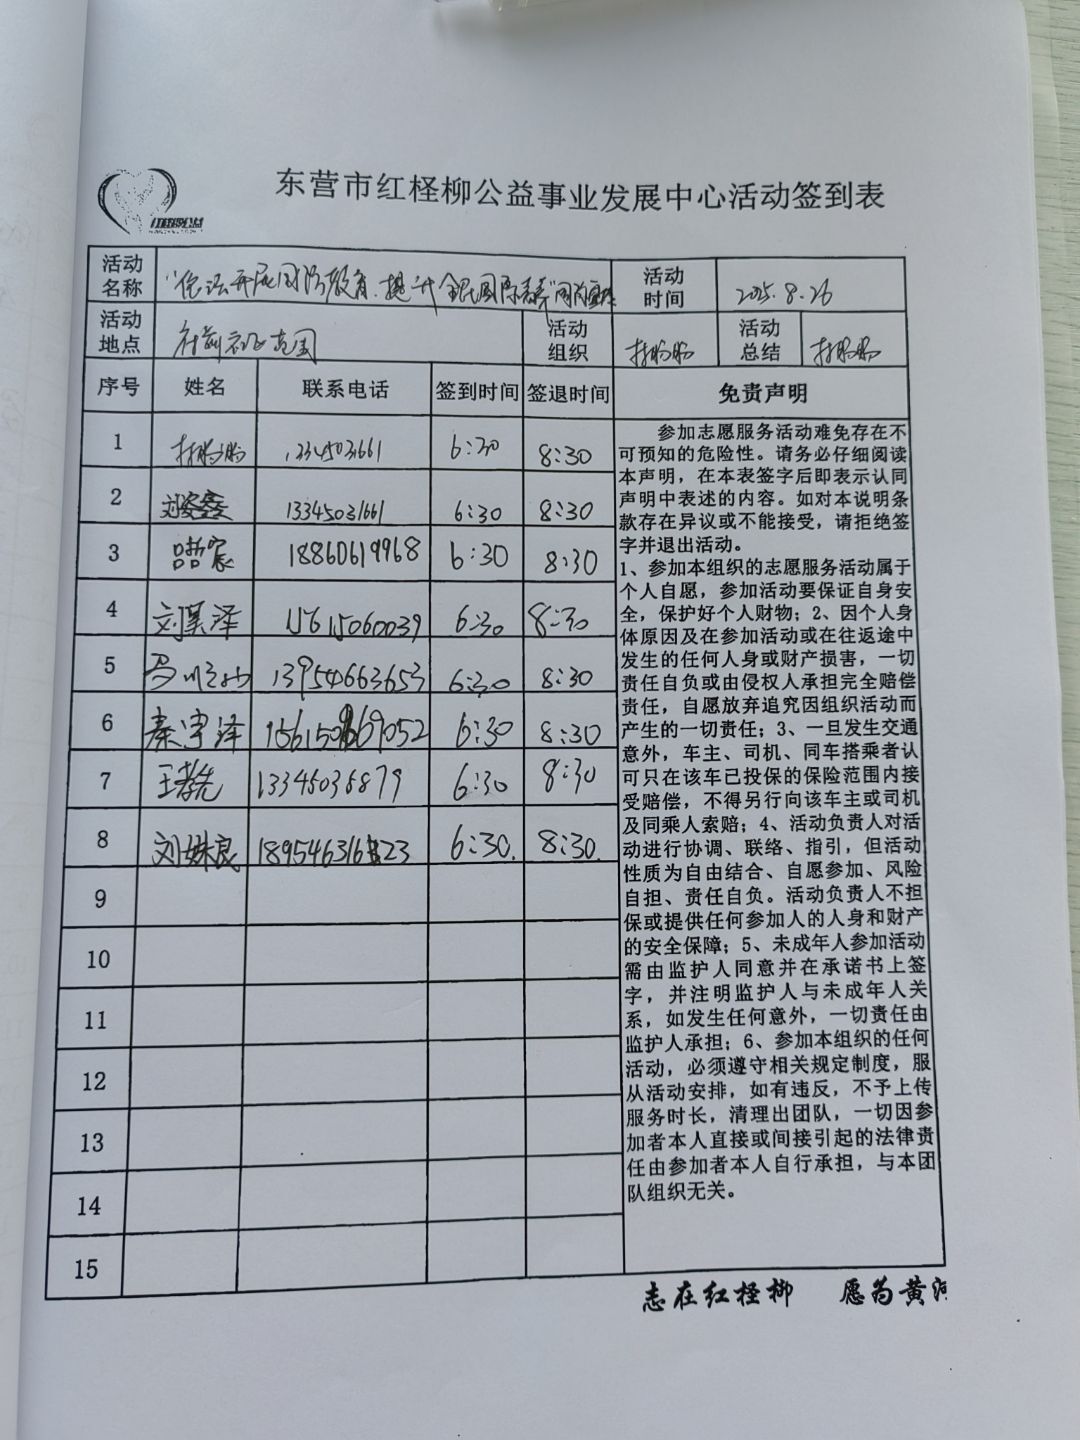 东营市红柽柳公益事业发展中心活动签到表
活动名称
活动时间 2025.8.26
活动地点
活动组织
活动总结
序号 姓名 联系电话 签到时间 签退时间 免责声明
1 13345031661 6:30 8:30
2 13345031661 6:30 8:30
3 18860619968 6:30 8:30
4 刘昊泽 15615060039 6:30 8:30
5 13954663653 6:30 8:30
6 秦宇泽 6:30 8:30
7 王孝先 13345035879 6:30 8:30
8 刘姝良 6:30. 8:30.
9
10
11
12
13
14
15
参加志愿服务活动难免存在不
可预知的危险性。请务必仔细阅读
本声明，在本表签字后即表示认同
声明中表述的内容。如对本说明条
款存在异议或不能接受，请拒绝签
字并退出活动。
1、参加本组织的志愿服务活动属于
个人自愿，参加活动要保证自身安
全，保护好个人财物；2、因个人身
体原因及在参加活动或在往返途中
发生的任何人身或财产损害，一切
责任自负或由侵权人承担完全赔偿
责任，自愿放弃追究因组织活动而
产生的一切责任；3、一旦发生交通
意外，车主、司机、同车搭乘者认
可只在该车已投保的保险范围内接
受赔偿，不得另行向该车主或司机
及同乘人索赔；4、活动负责人对活
动进行协调、联络、指引，但活动
性质为自由结合、自愿参加、风险
自担、责任自负。活动负责人不担
保或提供任何参加人的人身和财产
的安全保障；5、未成年人参加活动
需由监护人同意并在承诺书上签
字，并注明监护人与未成年人关
系，如发生任何意外，一切责任由
监护人承担；6、参加本组织的任何
活动，必须遵守相关规定制度，服
从活动安排，如有违反，不予上传
服务时长，清理出团队，一切因参
加者本人直接或间接引起的法律责
任由参加者本人自行承担，与本团
队组织无关。
志在红柽柳 愿为黄河